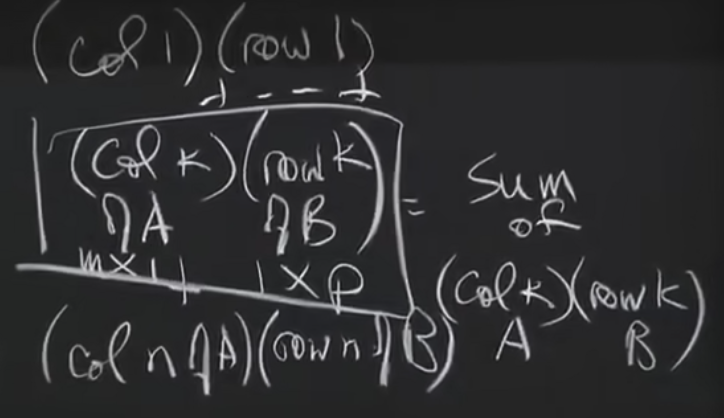 (col 1)(row 1)
+ - - - +
(col k)(row k)
of A of B
m x 1 1 x p
(col n of A)(row n of B)
= sum
of
(col k)(row k)
A B